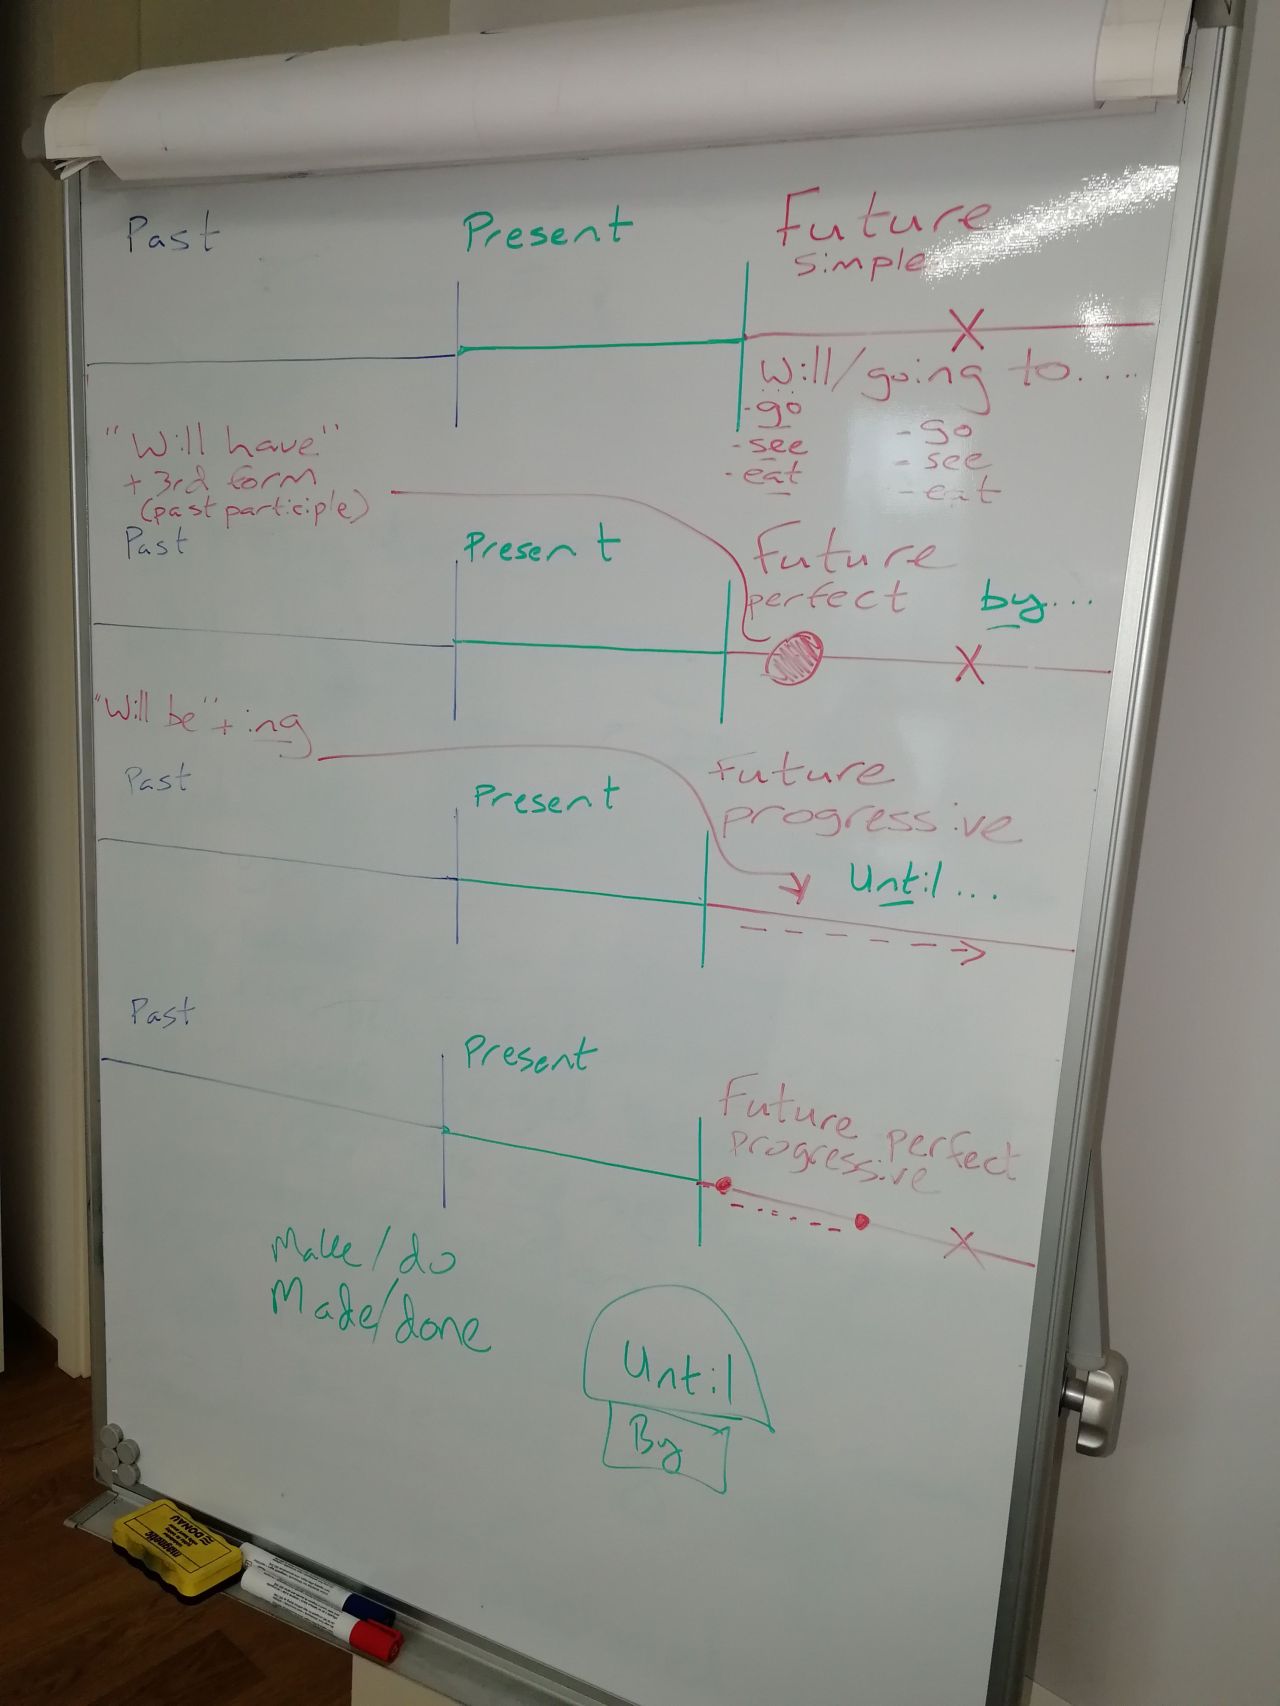 Past Present Future
simple
Will/going to....
-go -go
-see -see
-eat -eat
"Will have"
+ 3rd form
(past participle)
Past Present Future
perfect by...
"Will be" + ing
Past Present Future
progressive
Until...
Past Present Future perfect
progressive
Make/do
Made/done
Until
By
magnetic
DONAU